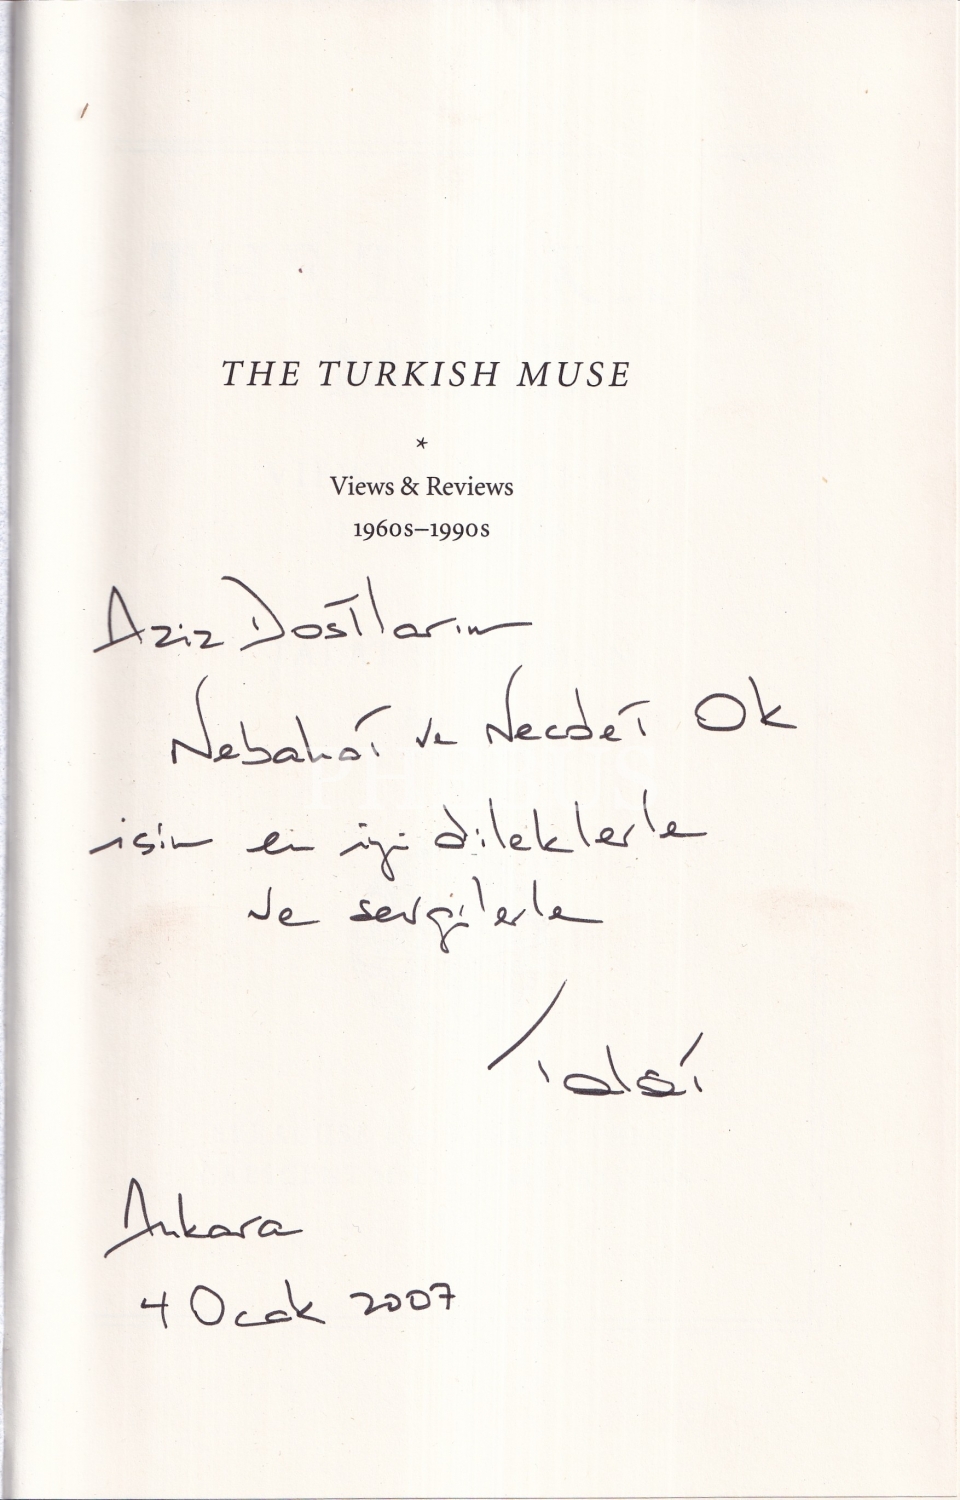 THE TURKISH MUSE
*
Views & Reviews
1960s–1990s
Aziz Dostlarım
Nebahat ve Necdet Ok
için en iyi dileklerle
ve sevgilerle
Talât
Ankara
4 Ocak 2007